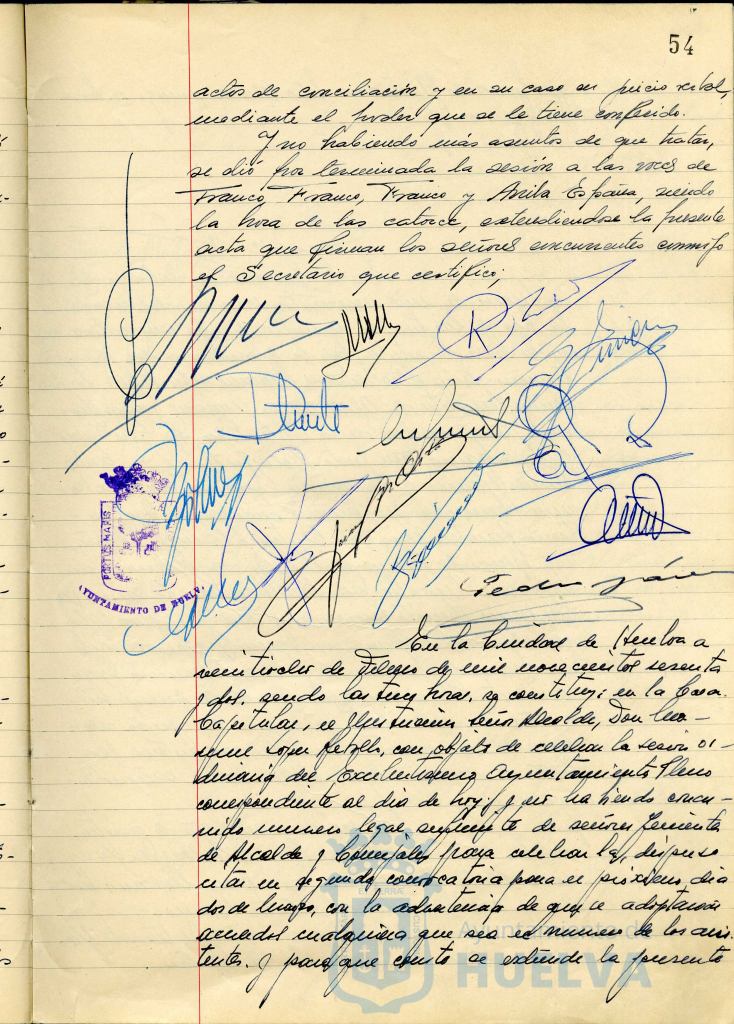 54
actos de conciliación y en su caso en juicio verbal,
mediante el poder que se le tiene conferido.
Y no habiendo más asuntos de que tratar,
se dió por terminada la sesión a las voces de
Franco, Franco, Franco y Arriba España, siendo
la hora de las catorce, extendiendose la presente
acta que firman los señores concurrentes conmigo
el Secretario que certifico;
Duarte
PORTUS MARIS
AYUNTAMIENTO DE HUELVA
Pedro
En la Ciudad de Huelva a
veintiocho de Febrero de mil novecientos sesenta
y dos, siendo las horas, se constituyó en la Casa
Capitular, el Ilustrísimo Señor Alcalde, Don
con objeto de celebrar la sesión or-
dinaria del Excelentísimo Ayuntamiento Pleno
correspondiente al dia de hoy; y no habiendo concu-
rrido numero legal suficiente de señores Tenientes
de Alcalde y Concejales para celebrarla, dispuso
citar en segunda convocatoria para el próximo dia
dos de Marzo, con la advertencia de que se adoptarán
acuerdos cualquiera que sea el numero de los asis-
tentes. Y para que conste se extiende la presente
Ayuntamiento de
HUELVA